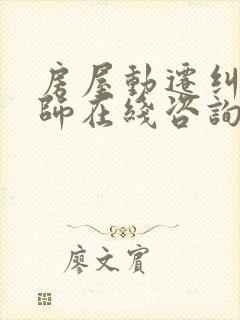 房屋動遷糾
師在綫咨詢
廖文賓